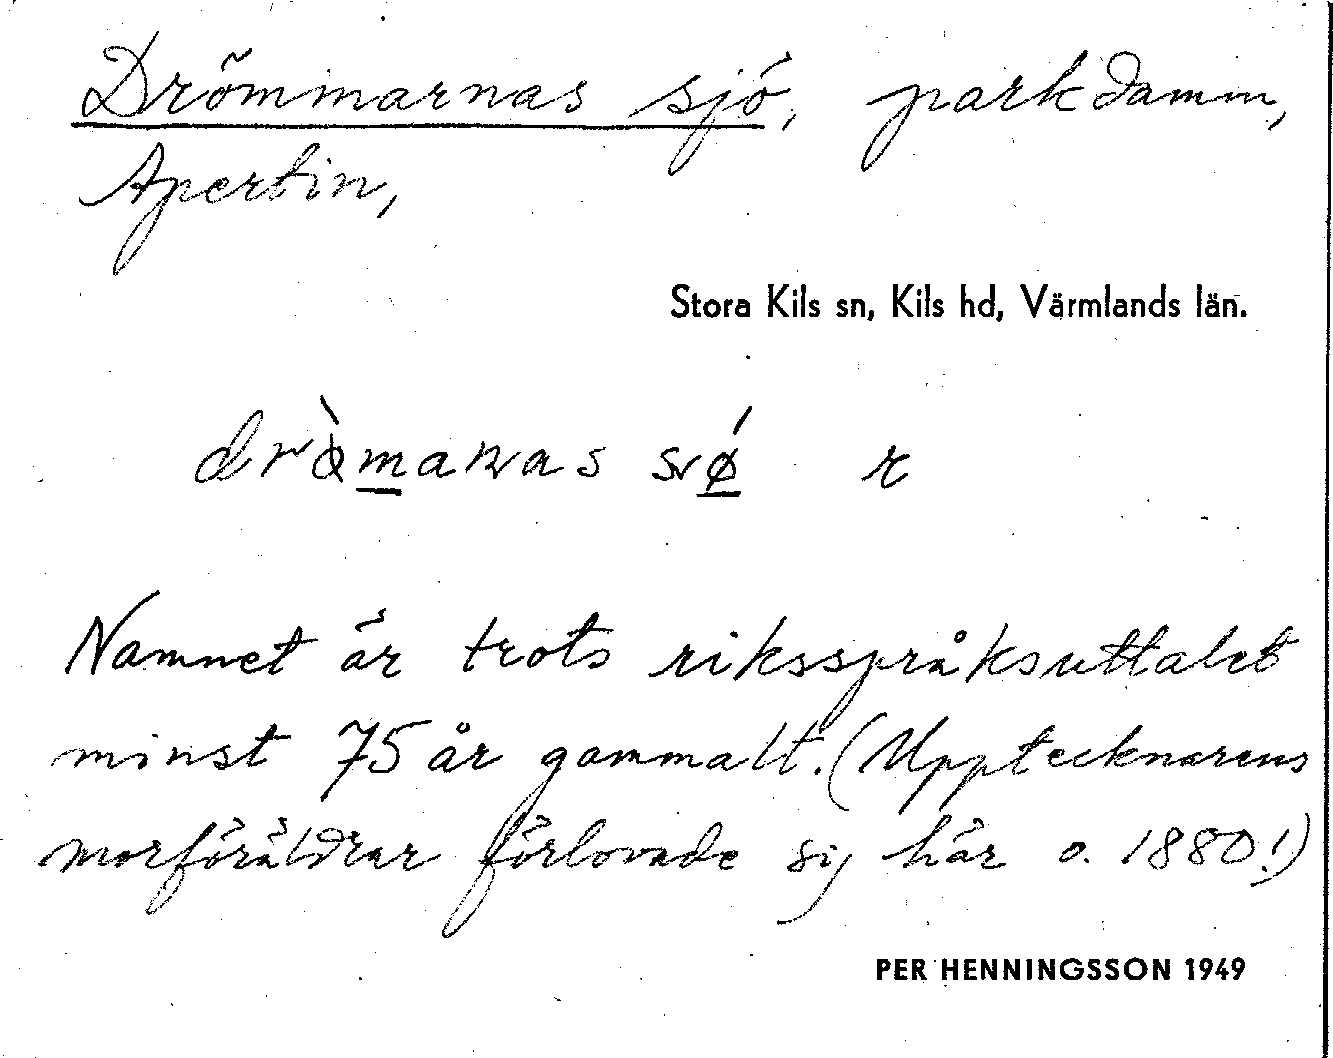 Drömmarnas sjö, parkdamm,
Apertin,
Stora Kils sn, Kils hd, Värmlands län.
r
Namnet är trots riksspråksuttalet
minst 75 år gammalt. (Upptecknarens
morföräldrar förlovade sig här o. 1880!)
PER HENNINGSSON 1949